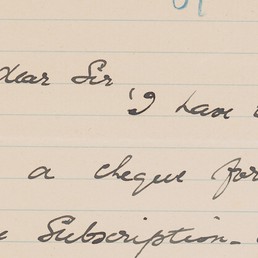 dear Sir
I have
a cheque for
Subscription-